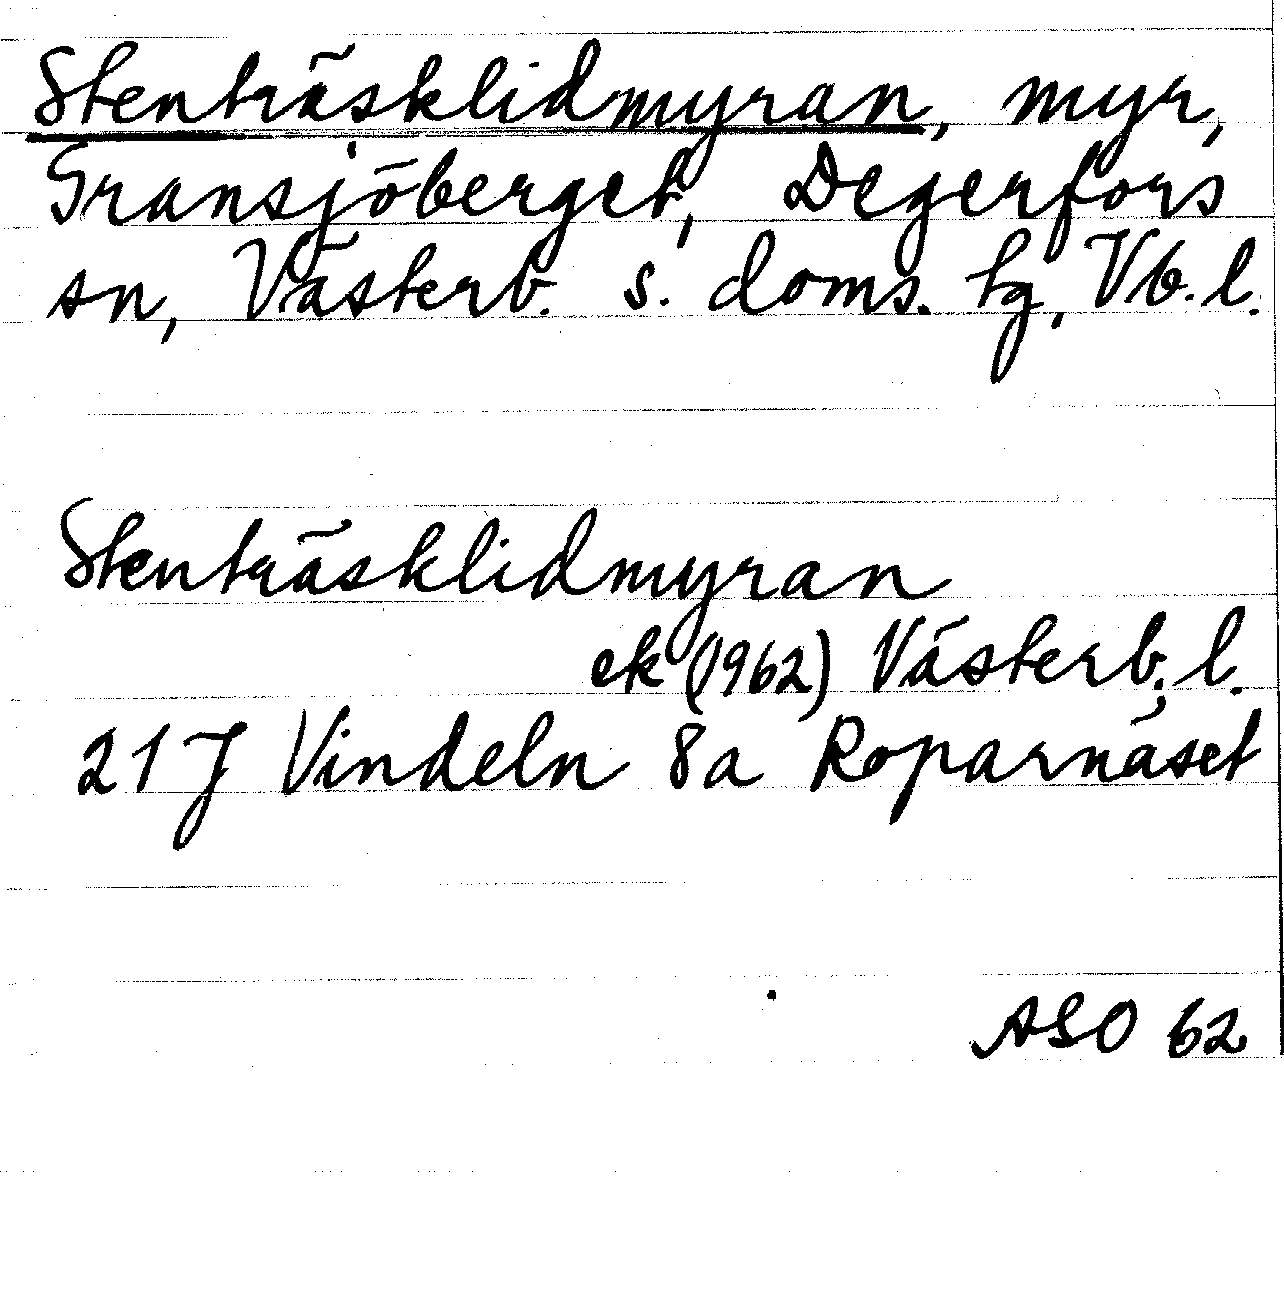 Stenträsklidmyran, myr,
Gransjöberget, Degerfors
sn, Västerb. s. doms. tg, Vb. l.
Stenträsklidmyran
ek (1962) Västerb. l.
21 J Vindeln 8a Roparnäset
ASO 62